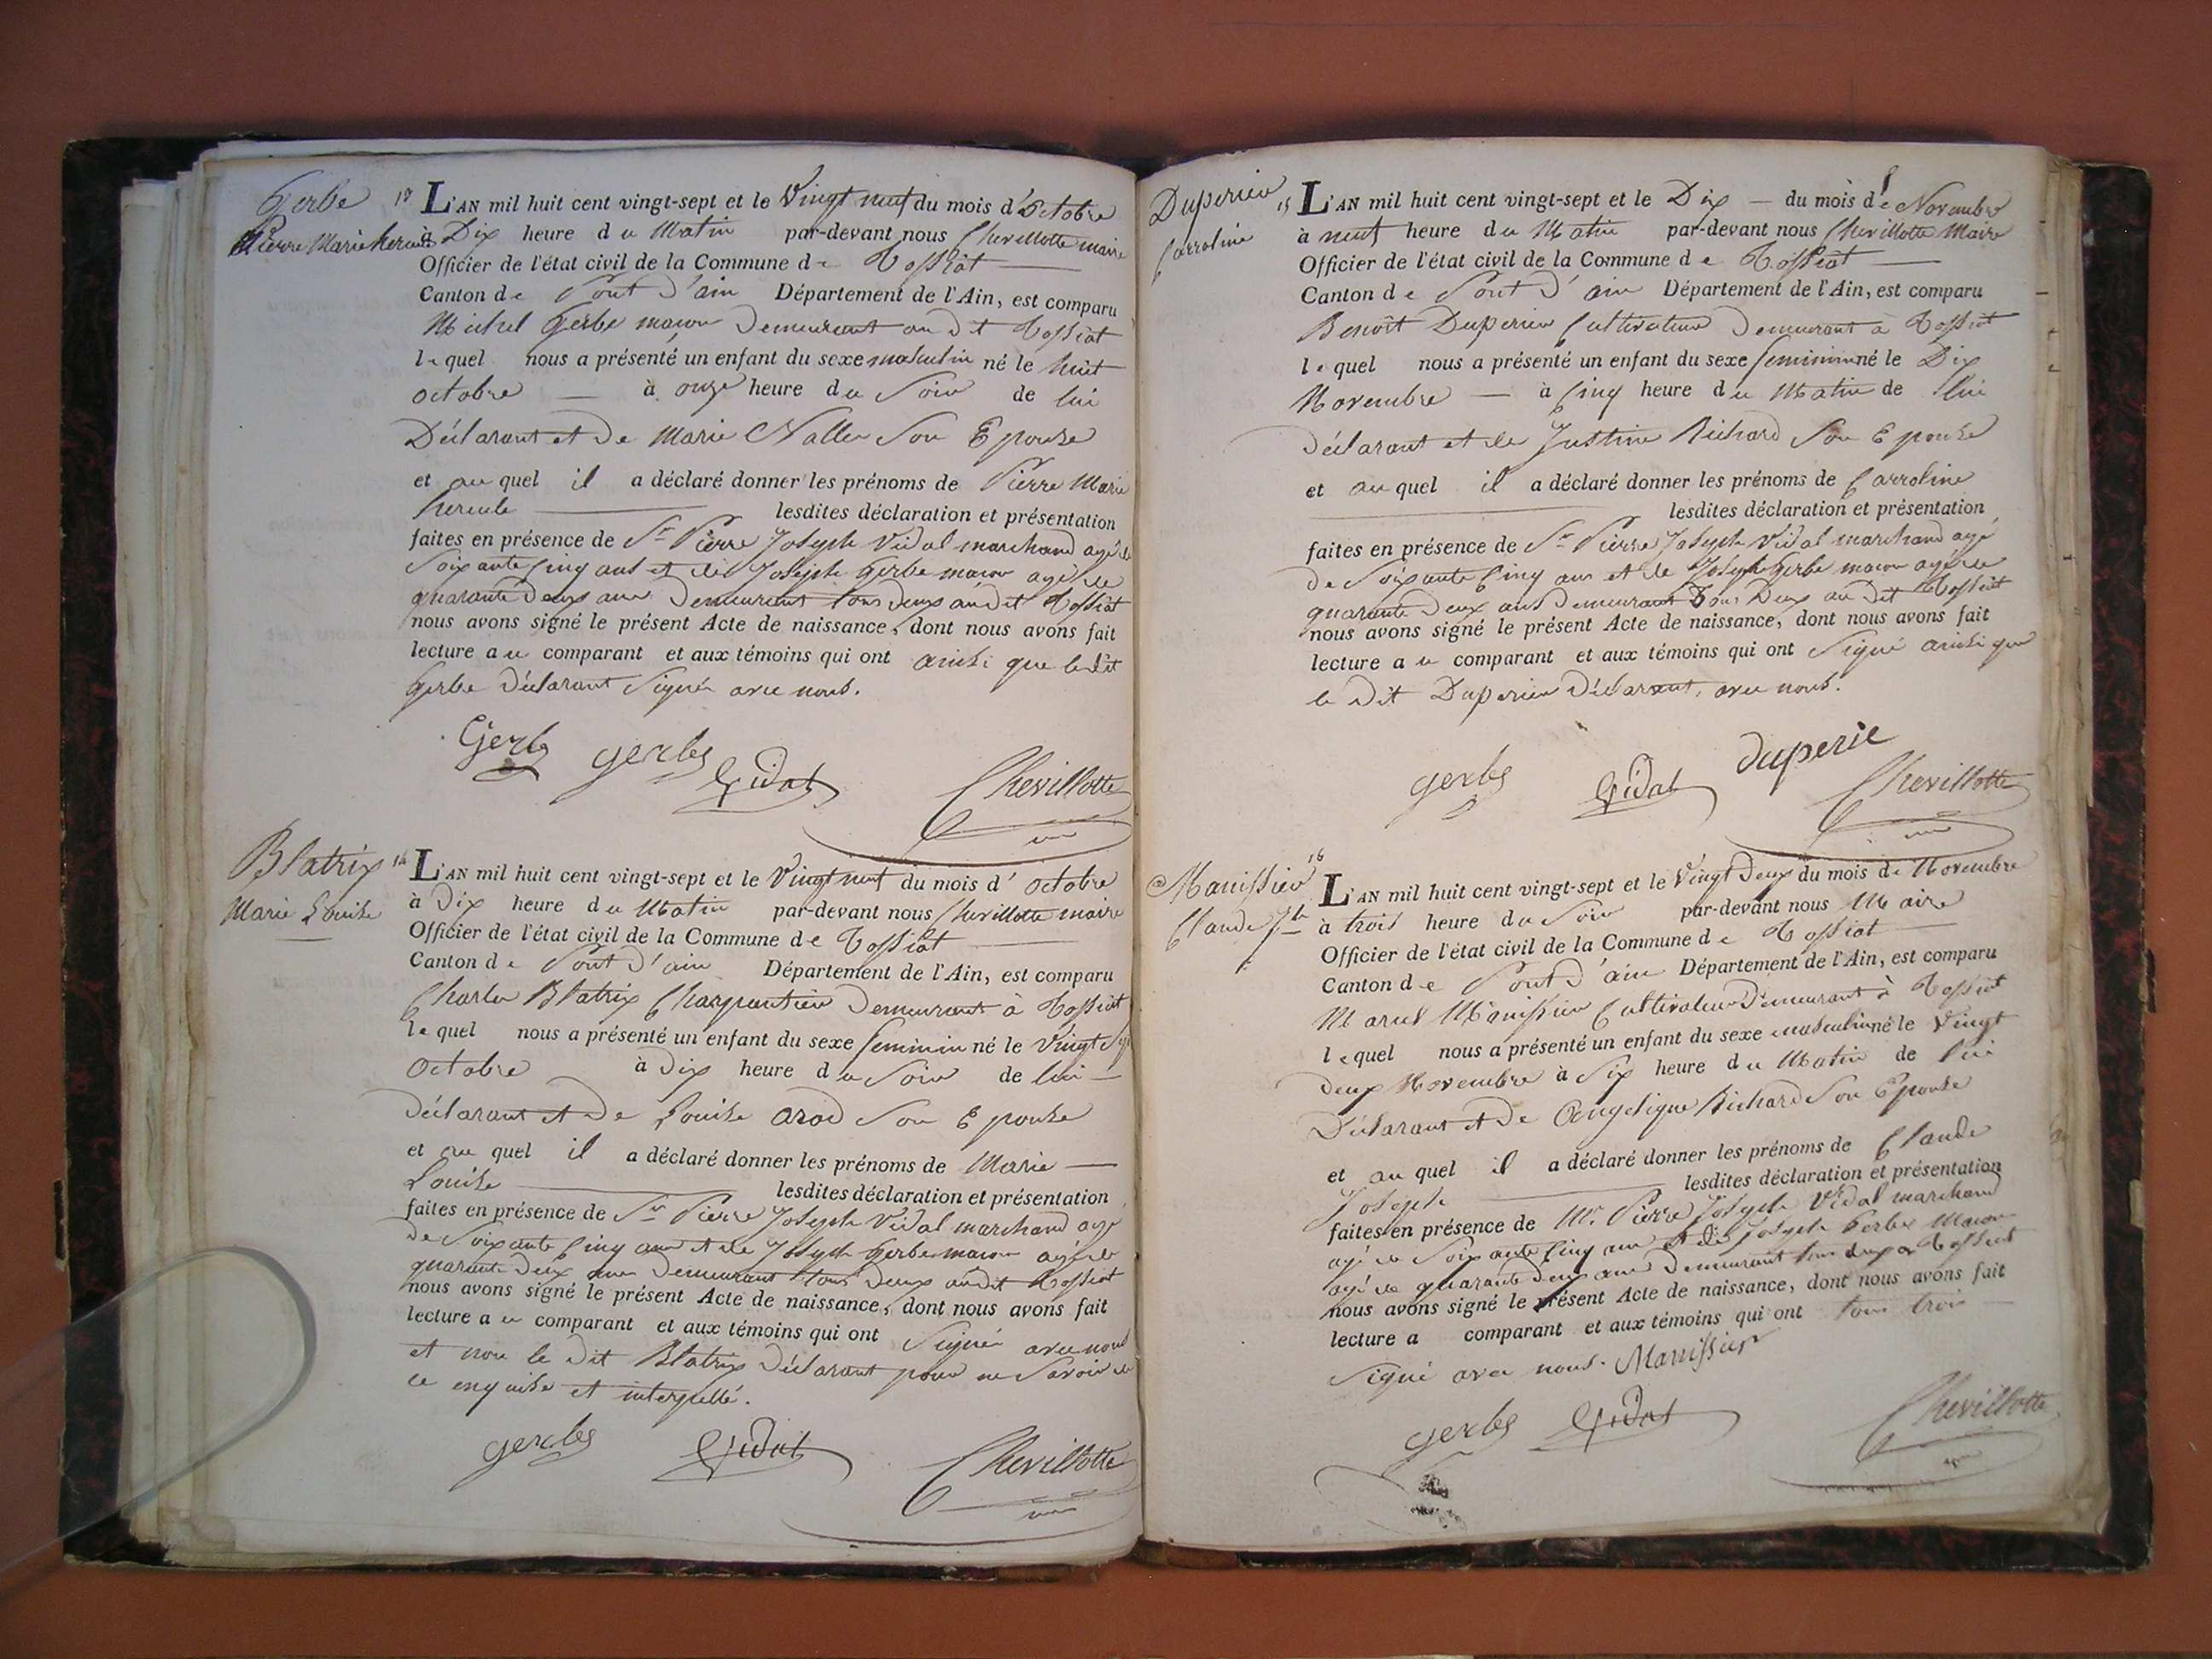 Gerbe
Pierre Marie hercule
L'AN mil huit cent vingt-sept et le Vingt neuf du mois d'Octobre
à Dix heure du Matin par-devant nous Chevillotte maire
Officier de l'état civil de la Commune de Tossiat
Canton de Pont d'ain Département de l'Ain, est comparu
Michel Gerbe macon Demeurant au dt Tossiat
lequel nous a présenté un enfant du sexe masculin né le huit
octobre à onze heure du Soir de lui
Déclarant et De Marie Nallet Son Epouse
et au quel il a déclaré donner les prénoms de Pierre Marie
hercule lesdites déclaration et présentation
faites en présence de Sr Pierre Joseph Vidal marchand agé de
Soixante Cinq ans et de Joseph Gerbe macon agé de
quarante Deux ans Demeurant tous deux audit Tossiat
nous avons signé le présent Acte de naissance, dont nous avons fait
lecture au comparant et aux témoins qui ont ainsi que ledit
Gerbe Déclarant Signés avec nous.
Gerbe gerbe Vidal
Chevillotte
Blatrix
Marie Louise
14
L'AN mil huit cent vingt-sept et le Vingt neuf du mois d' octobre
à Dix heure du Matin par-devant nous Chevillotte maire
Officier de l'état civil de la Commune de Tossiat
Canton de Pont d'ain Département de l'Ain, est comparu
Charles Blatrix Charpentier Demeurant à Tossiat
lequel nous a présenté un enfant du sexe feminin né le Vingt
Octobre à Dix heure du Soir de lui
Déclarant et De Louise arod Son Epouse
et au quel il a déclaré donner les prénoms de Marie
Louise lesdites déclaration et présentation
faites en présence de Sr Pierre Joseph Vidal marchand agé
De Soixante Cinq ans et de Joseph Gerbe macon agé de
quarante Deux ans Demeurant tous Deux audit Tossiat
nous avons signé le présent Acte de naissance, dont nous avons fait
lecture au comparant et aux témoins qui ont Signés avec nous
et non le dit Blatrix Déclarant pour ne Savoir de
ce enquise et interpellé.
gerbe Vidal
Chevillotte
Duperieu
Carroline
15
L'AN mil huit cent vingt-sept et le Dix du mois de Novembre
à neuf heure du Matin par-devant nous Chevillotte Maire
Officier de l'état civil de la Commune de Tossiat
Canton de Pont d'ain Département de l'Ain, est comparu
Benoît Duperieu Cultivateur Demeurant à Tossiat
lequel nous a présenté un enfant du sexe feminin né le Dix
Novembre à Cinq heure du Matin de lui
déclarant et de Justine Richard Son Epouse
et au quel il a déclaré donner les prénoms de Carroline
lesdites déclaration et présentation
faites en présence de Sr Pierre Joseph Vidal marchand agé
de Soixante Cinq ans et de Joseph Gerbe macon agé de
quarante Deux ans demeurant Tous Deux au Dit Tossiat
nous avons signé le présent Acte de naissance, dont nous avons fait
lecture au comparant et aux témoins qui ont Signé ainsi que
le Dit Duperieu Déclarant, avec nous.
gerbe Vidal duperie
Chevillotte
Manissier
Claude Jh
16
L'AN mil huit cent vingt-sept et le Vingt Deux du mois de Novembre
à trois heure du Soir par-devant nous Maire
Officier de l'état civil de la Commune de Tossiat
Canton de Pont d'ain Département de l'Ain, est comparu
Manissier Cultivateur Demeurant à Tossiat
lequel nous a présenté un enfant du sexe masculin né le Vingt
Deux Novembre à Six heure du Matin de lui
Déclarant et De Angelique Richard Son Epouse
et au quel il a déclaré donner les prénoms de Claude
Joseph lesdites déclaration et présentation
faites en présence de Mr. Pierre Joseph Vidal marchand
agé de Soixante Cinq ans et de Joseph Gerbe Macon
agé de quarante Deux ans Demeurant tous deux a Tossiat
nous avons signé le présent Acte de naissance, dont nous avons fait
lecture a comparant et aux témoins qui ont tous trois
Signé avec nous. Manissier
gerbe Vidal
Chevillotte